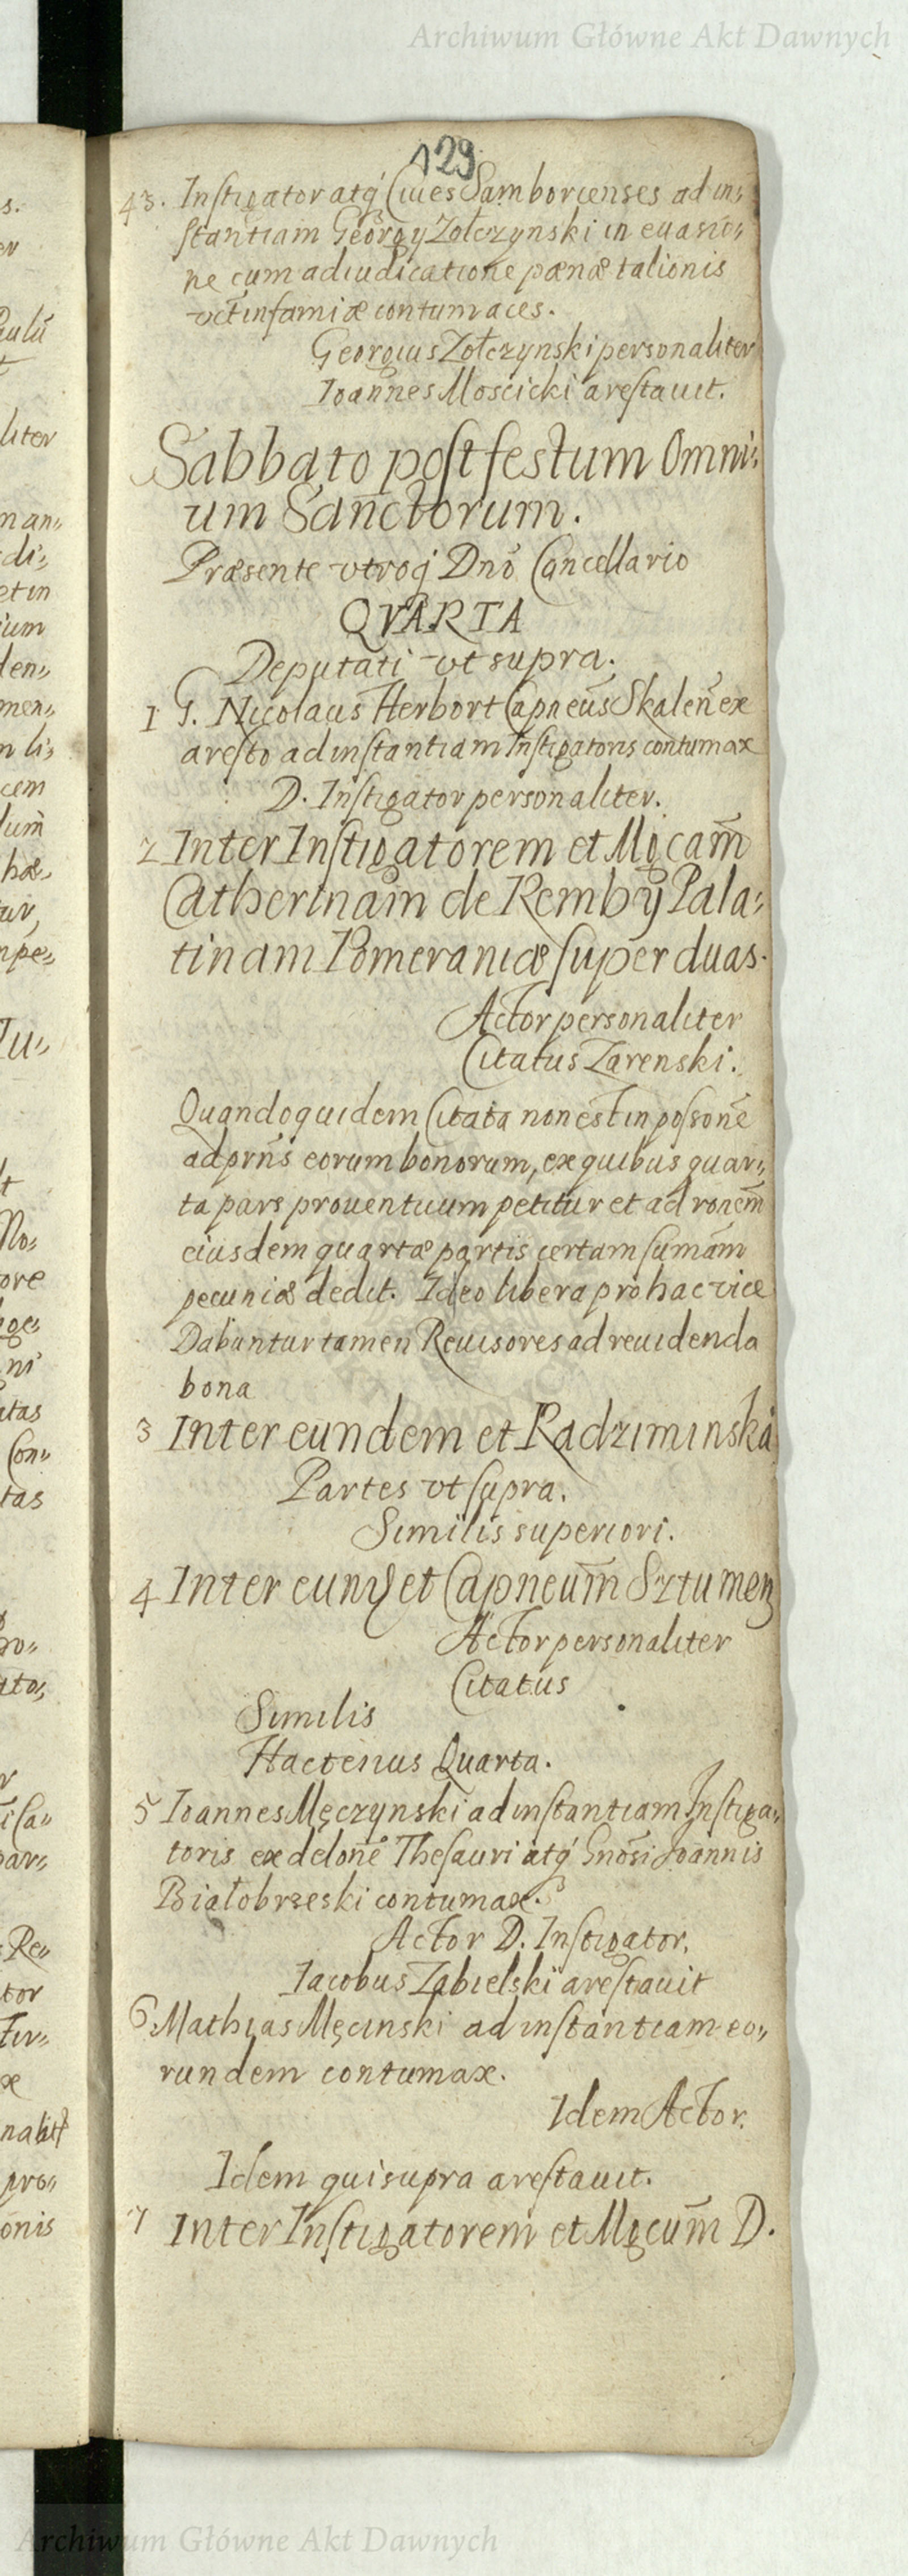 Archiwum Główne Akt Dawnych
129
43. Instigator atq́ Ciues Samborienses ad in„
stantiam Georgy Zołczynski in euasio„
ne cum adiudicatione pænæ talionis
vct infamiæ contumaces.
Georgius Zołczynski personaliter
Ioannes Moscicki arestauit.
Sabbato post festum Omni„
um Sanctorum.
Præsente vtroq́ Dno Cancellario
QVARTA
Deputati vt supra.
1 G. Nicolaus Herbort Capneus Skalen ex
aresto ad instantiam Instigatoris contumax
D. Instigator personaliter.
2 Inter Instigatorem et Mgcam̄
Catherinam de Remby Pala„
tinam Pomeraniæ super duas.
Actor personaliter
Citatus Zarenski.
Quandoquidem Citata non est in possone
ad prn̄s eorum bonorum, ex quibus quar„
ta pars prouentuum petitur et ad ronem̄
eiusdem quartæ partis certam sumam̄
pecuniæ dedit. Ideo libera pro hac vice
Dabuntur tamen Reuisores ad reuidenda
bona
3 Inter eundem et Radziminski
Partes vt supra.
Similis superiori.
4 Inter eund et Capneum̄ Sztumen
Actor personaliter
Citatus
Similis
Hactenus Quarta.
5 Ioannes Męczynski ad instantiam Instiga„
toris ex delone Thesauri atq́ Gnosi Joannis
Białobrzeski contumax.
Actor D. Instigator.
Iacobus Zabielski arestauit
6. Mathias Męcinski ad instantiam eo„
rundem contumax.
Idem Actor.
Idem qui supra arestauit.
7 Inter Instigatorem et Mgcum̄ D.
Archiwum Główne Akt Dawnych